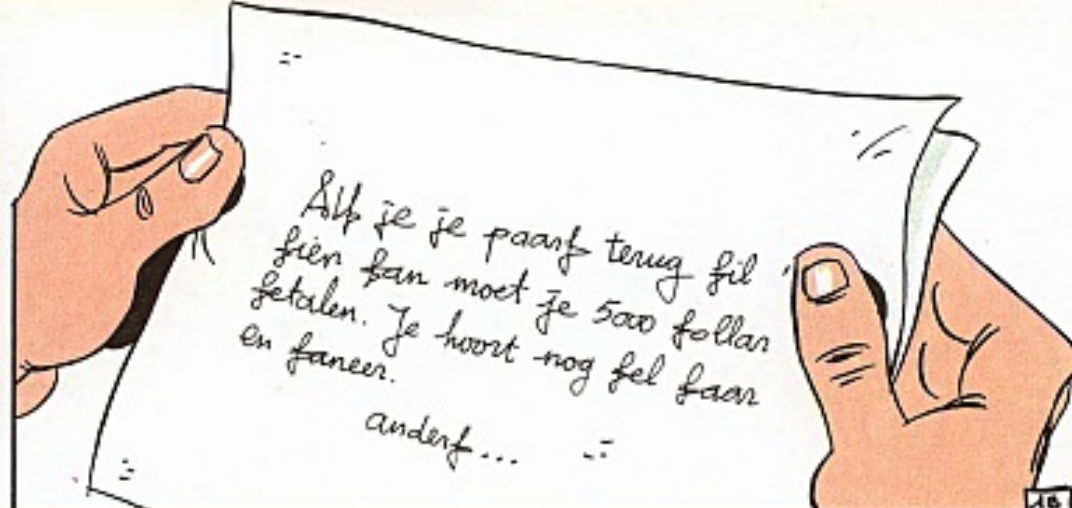 Alf je je paarf terug fil
fien fan moet je 5000 follar
fetalen. Je hoort nog fel faar
en faneer.
anderf...
18